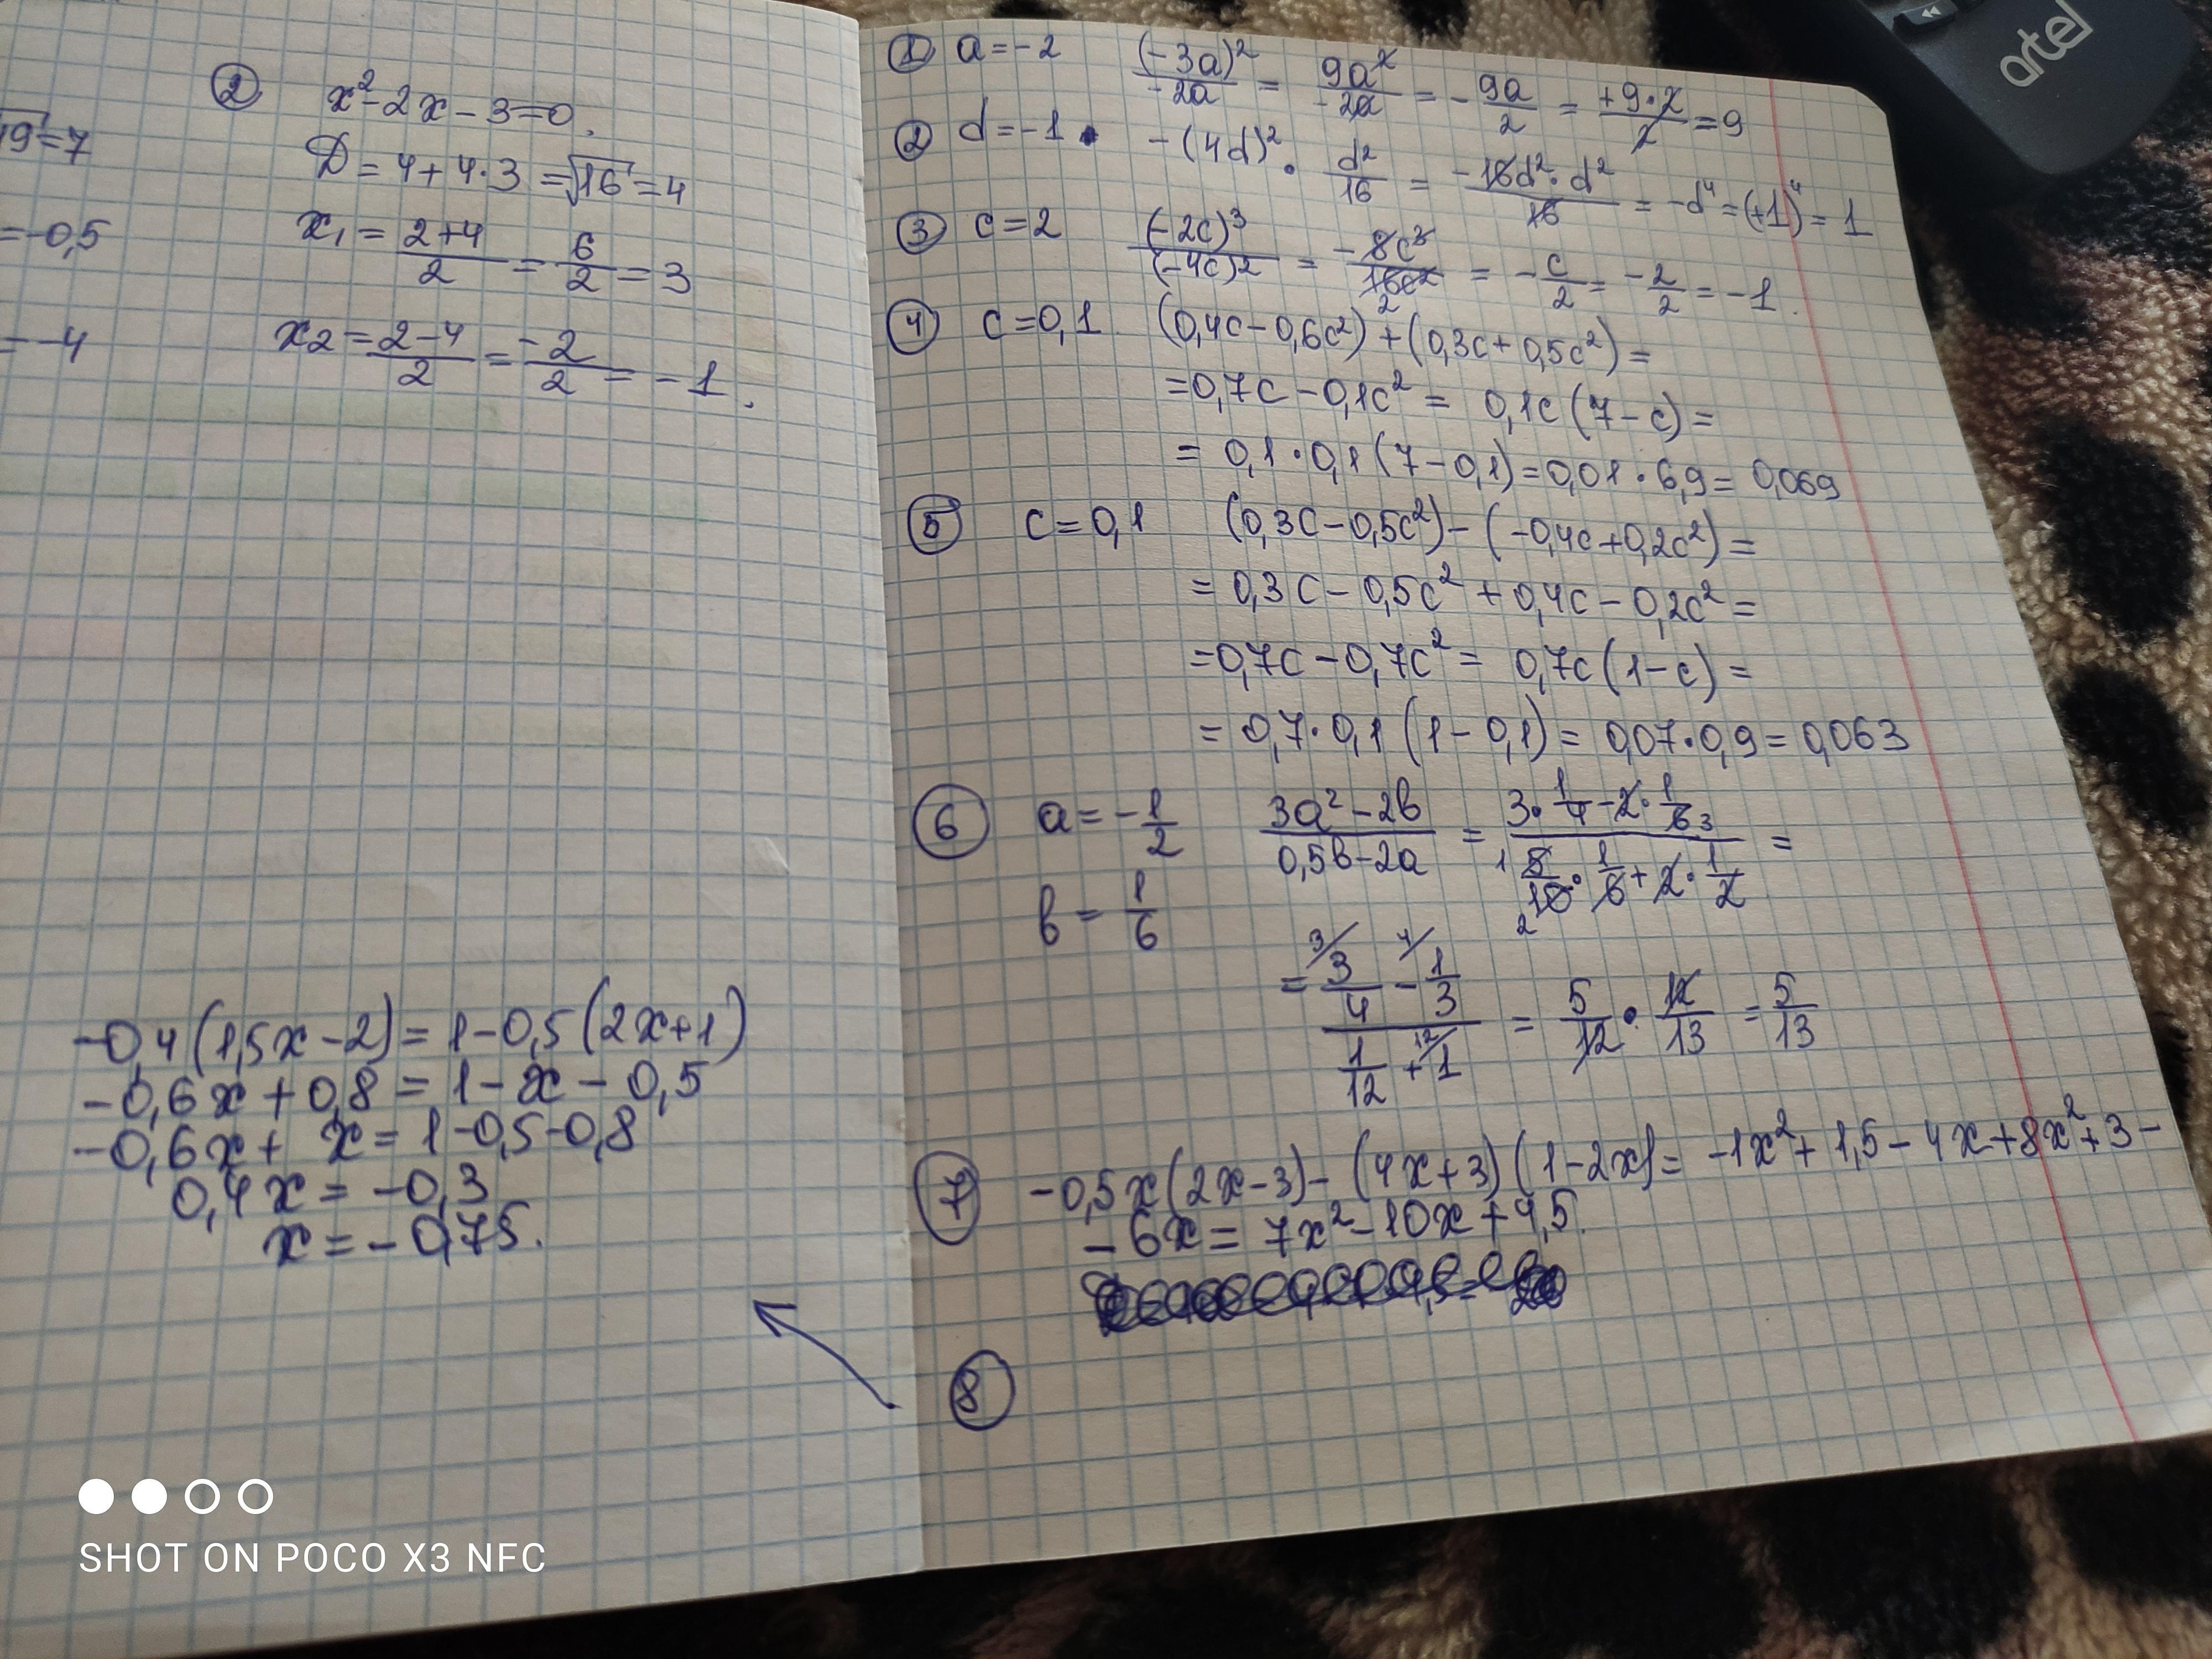 √49=7
=-0,5
=-4
② x²-2x-3=0.
D=4+4·3=√16=4
x₁=(2+4)/2=6/2=3
x₂=(2-4)/2=-2/2=-1.
-0,4(1,5x-2)=1-0,5(2x+1)
-0,6x+0,8=1-x-0,5
-0,6x+x=1-0,5-0,8
0,4x=-0,3
x=-0,75.
① a=-2 (-3a)²/-2a=9a²/-2a=-9a/2=+9·2/2=9
② d=-1 -(4d)²·d²/16=-16d²·d²/16=-d⁴=(+1)⁴=1
③ c=2 (-2c)³/(-4c)²=-8c³/16c²=-c/2=-2/2=-1.
④ c=0,1 (0,4c-0,6c²)+(0,3c+0,5c²)=
=0,7c-0,1c²=0,1c(7-c)=
=0,1·0,1(7-0,1)=0,01·6,9=0,069
⑤ c=0,1 (0,3c-0,5c²)-(-0,4c+0,2c²)=
=0,3c-0,5c²+0,4c-0,2c²=
=0,7c-0,7c²=0,7c(1-c)=
=0,7·0,1(1-0,1)=0,07·0,9=0,063
⑥ a=-1/2 (3a²-2b)/(0,5b-2a)=(3·1/4-2·1/6)/(5/10·1/6+2·1/2)=
b=1/6
=(3/4-1/3)/(1/12+1)=5/12·12/13=5/13
⑦ -0,5x(2x-3)-(4x+3)(1-2x)=-1x²+1,5-4x+8x²+3-
-6x=7x²-10x+4,5.
⑧
artel
SHOT ON POCO X3 NFC